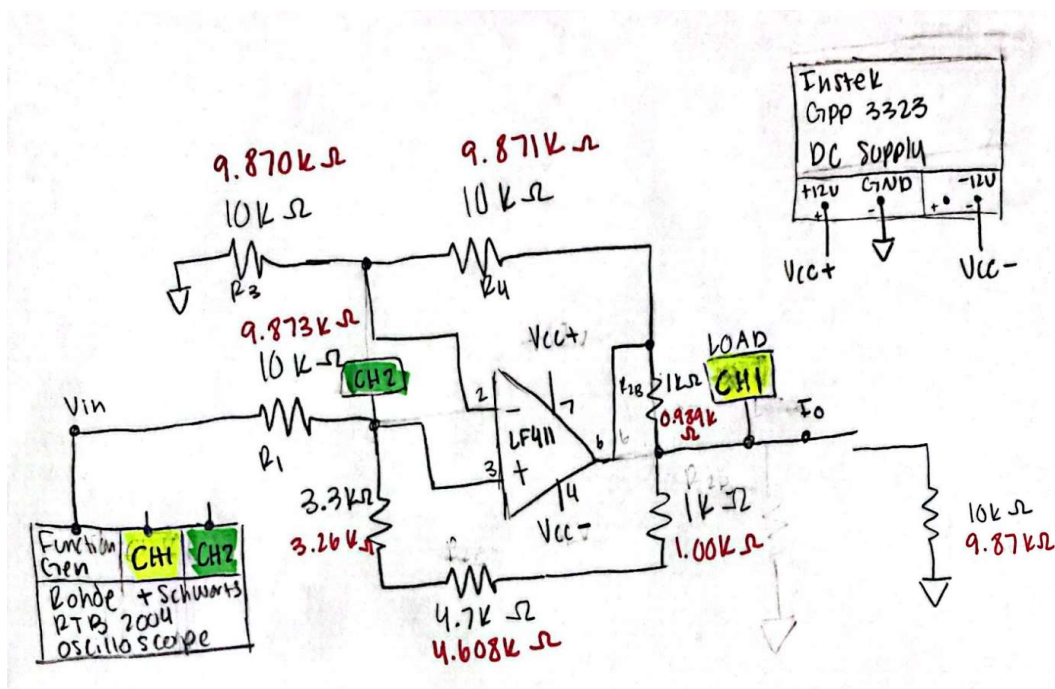 Instek
GPP 3323
DC Supply
+12V GND -12V
+ - + -
Vcc+
Vcc-
9.870k Ω
10k Ω
R3
9.871k Ω
10k Ω
R4
9.873k Ω
10k Ω
CH2
Vin
R1
Vcc+
2 - 7
LF411 6 6
3 + 4
Vcc-
R2B 1kΩ
0.989k
Ω
LOAD
CH1
Io
3.3kΩ
3.26kΩ
1k Ω
1.00kΩ
10k Ω
9.87kΩ
4.7k Ω
4.608k Ω
Function
Gen
CH1
CH2
Rohde + Schwarts
RTB 2004
oscilloscope